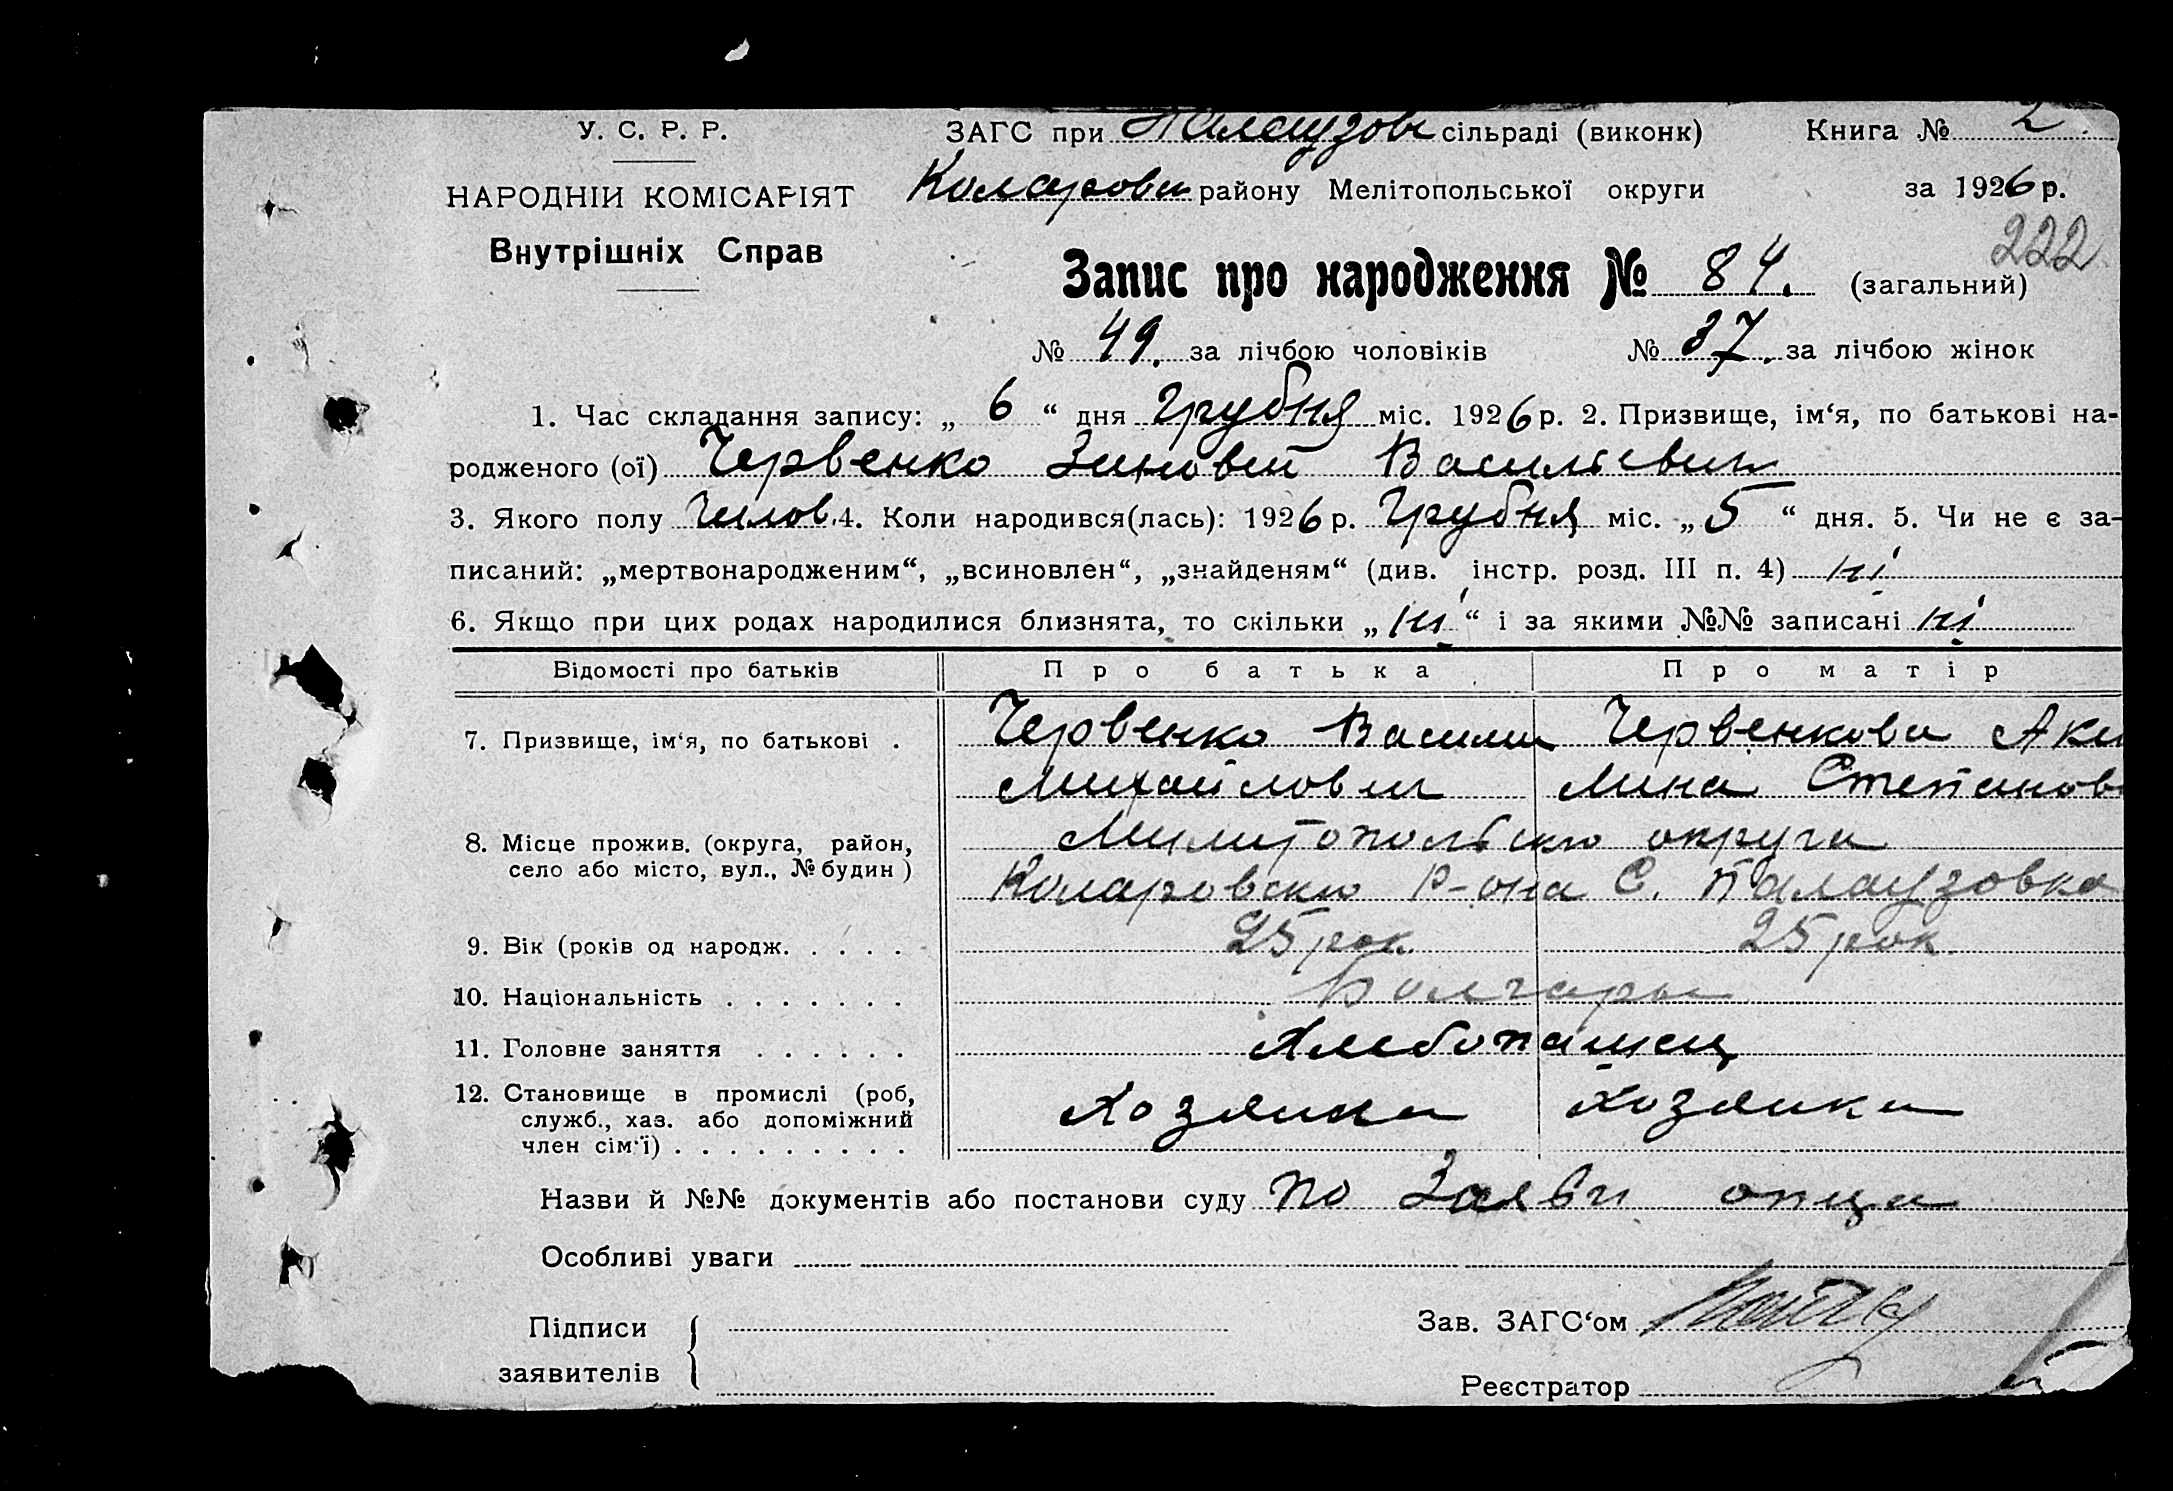 У. С. Р. Р.
НАРОДНІЙ КОМІСАРІЯТ
Внутрішніх Справ
ЗАГС при Палаузов сільраді (виконк) Книга № 2
Коларовск району Мелітопольської округи за 1926 р.
222
Запис про народження № 84. (загальний)
№ 49. за лічбою чоловіків № 37. за лічбою жінок
1. Час складання запису: „ 6 “ дня Грубня міс. 1926 р. 2. Призвище, ім‘я, по батькові на-
родженого (ої) Червенко Зиновей Васильевич
3. Якого полу Чилов. 4. Коли народився(лась): 1926 р. Грубня міс. „ 5 “ дня. 5. Чи не є за-
писаний: „мертвонародженим“, „всиновлен“, „знайденям“ (див. інстр. розд. III п. 4) ні
6. Якщо при цих родах народилися близнята, то скільки „ ні “ і за якими №№ записані ні
Відомості про батьків Про батька Про матір
7. Призвище, ім‘я, по батькові . Червенко Василий Червенкова Аки
Михайлович лина Степанов
8. Місце прожив. (округа, район, село або місто, вул., № будин) Милитопольскю округи
Коларовскю Р-она С. Палаузовка
9. Вік (років од народж. . . . . 25 рок 25 рок
10. Національність . . . . . . . Болгары
11. Головне заняття . . . . . . Хлебопашец
12. Становище в промислі (роб, служб., хаз. або допоміжний член сім‘ї) . . . . . . . . . Хозяина Хозяика
Назви й №№ документів або постанови суду по Заяви отца
Особливі уваги
Підписи заявителів
Зав. ЗАГС‘ом
Реєстратор